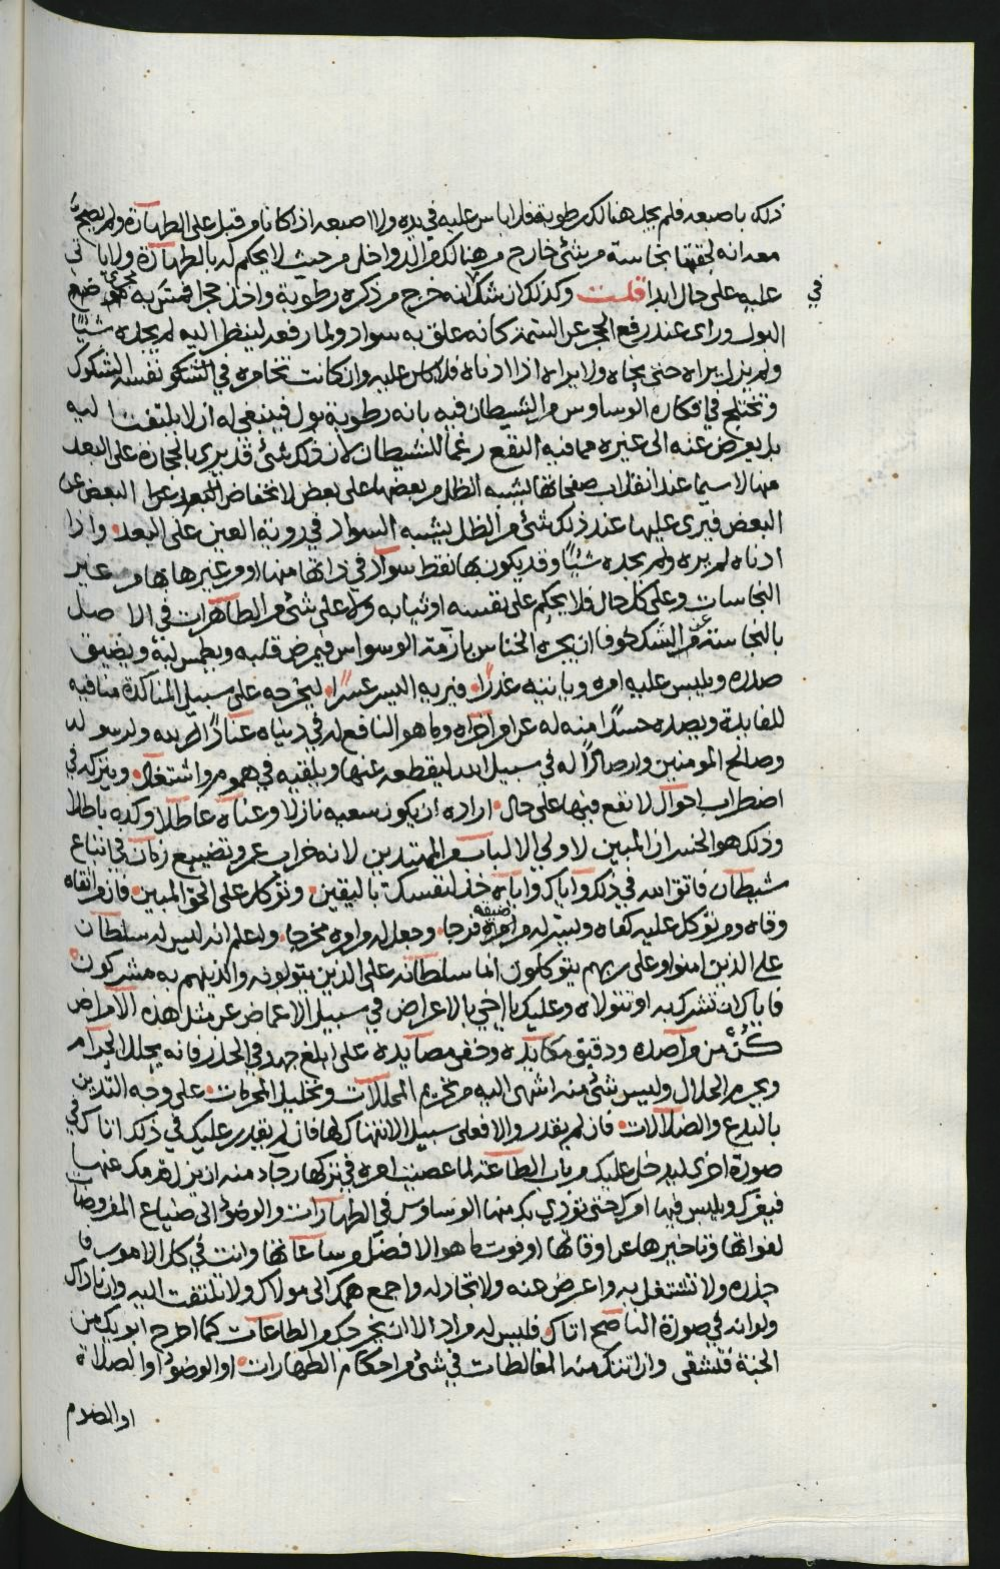 ذلك باصبعه فلم يجد هنالك رطوبة فلا باس عليه في يده ولا اصبعه اذا كانا من قبل على الطهارة ولم يصح
معه انه لحقتها نجاسة من شئ خارج من هنالك من الدواخل من حيث لا يحكم له بالطهارة ولا باس
في
عليه على حال ابدا قلت وكذلك ان شك انه خرج من ذكره رطوبة واخذ حجرا فمس به موضع
البول وراى عند رفع الحجر عن كانه علق به سواد ولما رفعه لينظر اليه لم يجده شيئا
ولم يزل يراه حتى نحاه ولا يراه اذا ادناه فلا باس عليه وان كانت تخامره في نفسه الشكوك
وتختلج في افكاره الوساوس من الشيطان فيه بانه رطوبة بول فينبغي له ان لا يلتفت اليه
بل يعرض عنه الى غيره مما فيه النفع رغما للشيطان لان ذلك شئ قد يرى بالحجارة على البعد
منها لا سيما عند انقلاب صفحاتها يشبه الظل من بعضها على بعض لانخفاض البعض عن
البعض فيرى عليها عند ذلك شئ من الظل يشبه السواد في روية العين على البعد واذا
ادناه لم يره ولم يجده شيئا وقد يكون بها نقط سواد في ذاتها منها او من غيرها من غير
النجاسات وعلى كل حال فلا يحكم على نفسه او ثيابه ولا على شئ من الطاهرات في الاصل
بالنجاسة عن الشك خوفا ان يجره الخناس بازمة الوسواس فيمرض قلبه ويطمس لبه ويضيق
صدره ويلبس عليه امره وياتيه غدرا فيريه اليسر عسرا ليخرجه على سبيل المناكدة مما فيه
الفايدة ويصده حسدا منه له عن امر اخراه وما هو النافع له في دنياه عنادا لربه ولرسوله
وصالح المومنين وارصادا له في سبيل الله ليقطعه عنها ويلقيه في هموم واشتغال ويتركه في
اضطراب احوال لا نفع فيها على حال ارادة ان يكون سعيه نازلا وعناه عاطلا وكده باطلا
وذلك هو الخسران المبين لاولي الالباب المهتدين لانه خراب عمر وتضييع زمان في اتباع
شيطان فاتق الله في ذلك واياك واياه خذ لنفسك باليقين وتوكل على الحق المبين فانه من اتقاه
وقاه ومن توكل عليه كفاه ويسر له من امره ضيقه فرجا وجعل له من امره مخرجا ولتعلم انه ليس له سلطان
على الذين امنوا وعلى ربهم يتوكلون انما سلطانه على الذين يتولونه والذين هم به مشركون
فاياك ان تشرك به او تتولاه وعليك يا اخي بالاعراض في سبيل الاغماض عن مثل هذه الامراض
كن من مراصده ودقيق مكايده وخفي مصايده على ابلغ جهد في الحذر فانه يحلل الحرام
ويحرم الحلال وليس شئ منه اشهى اليه من تحريم المحللات وتحليل المحرمات على وجه التدين
بالبدع والضلالات فان لم يقدر والا فعلى سبيل الانتهاك لها فان لم يقدر عليك في ذلك اتاك في
صورة اخرى ليدخل عليك من باب الطاعة لما عصيت امره في تركها رجاء منه ان يزل قدمك عنها
فيغرك ويلبس فيها امرك حتى تؤذي بك منها الوساوس في الطهارات والوضوء الى ضياع المفروضات
لفواتها وتاخيرها عن اوقاتها او فوت ما هو الافضل من ساعاتها وانت في كل الامور فا
حذره ولا تشتغل به واعرض عنه ولا تجادله واجمع همك الى مولاك ولا تلتفت اليه وان ناداك
ولو انه في صورة الناصح اتاك فليس له مراد الا ان يخرجك من الطاعات كما اخرج ابويك من
الجنة فتشقى وان اتتك منه المغالطات في شئ من احكام الطهارات او الوضوء او الصلاة
او الصيام